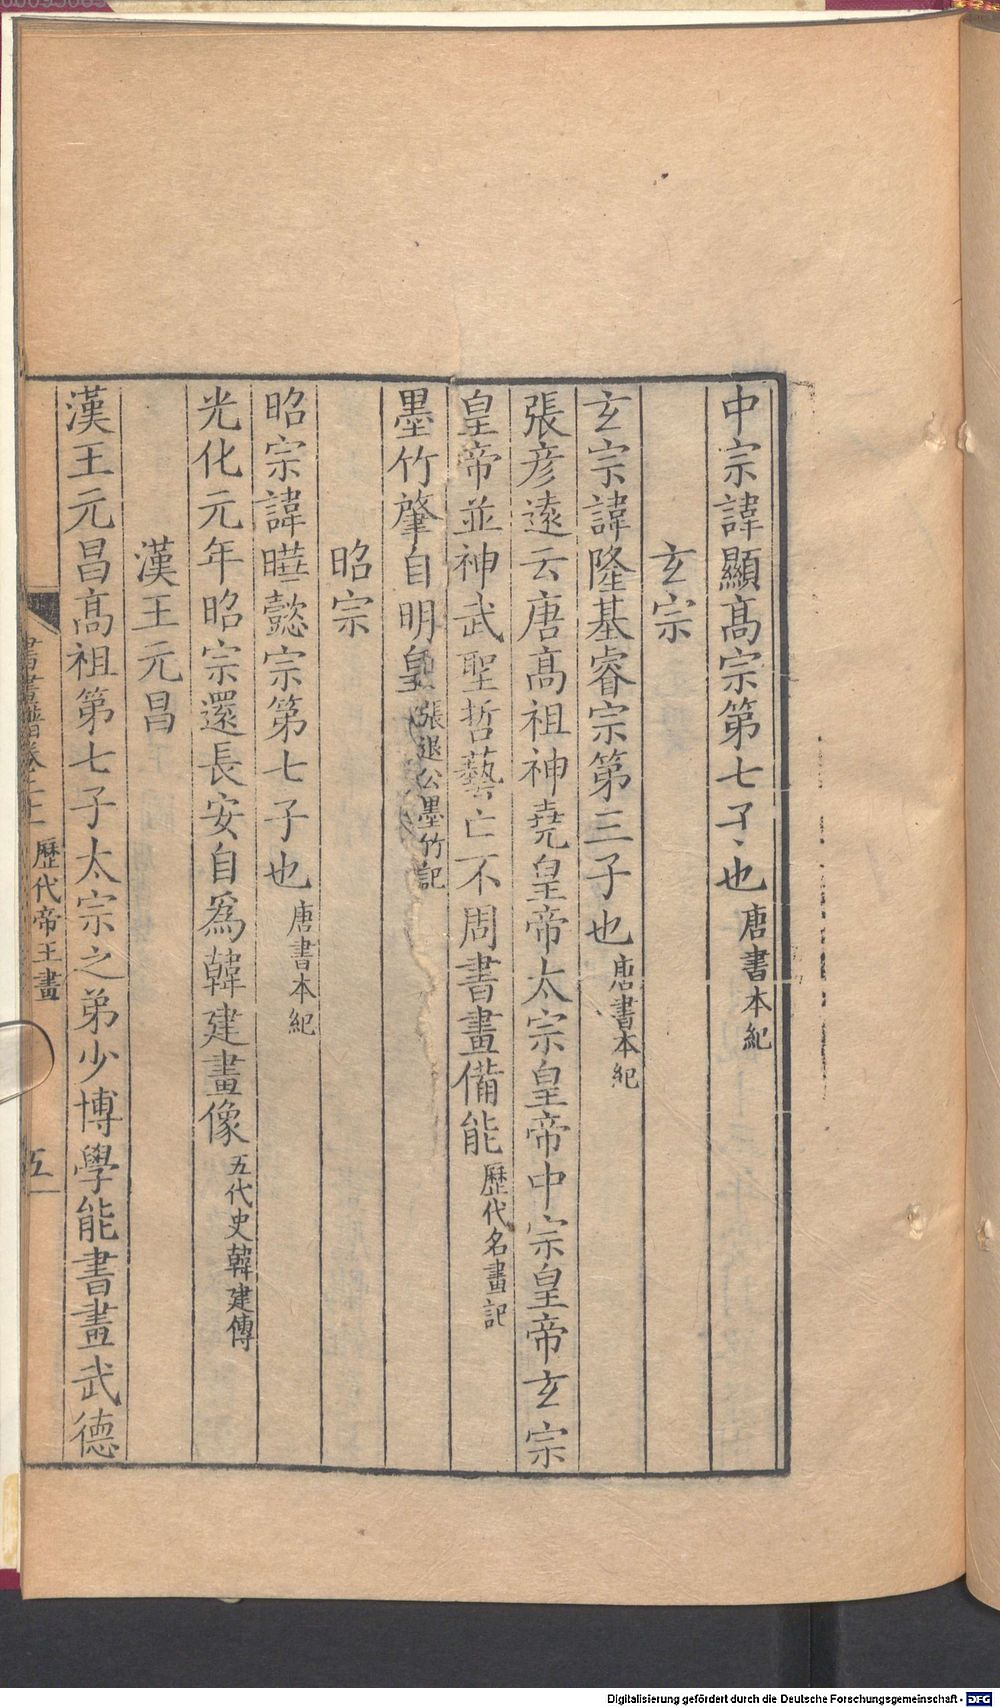 中宗諱顯髙宗第七子也唐書本紀
玄宗
玄宗諱隆基睿宗第三子也唐書本紀
張彦遠云唐髙祖神堯皇帝太宗皇帝中宗皇帝玄宗
皇帝並神武聖哲藝亡不周書畫備能歷代名畫記
墨竹肇自明皇張退公墨竹記
昭宗
昭宗諱曄懿宗第七子也唐書本紀
光化元年昭宗還長安自爲韓建畫像五代史韓建傳
漢王元昌
漢王元昌髙祖第七子太宗之弟少博學能書畫武德
歷代帝王畫
五
Digitalisierung gefördert durch die Deutsche Forschungsgemeinschaft - DFG